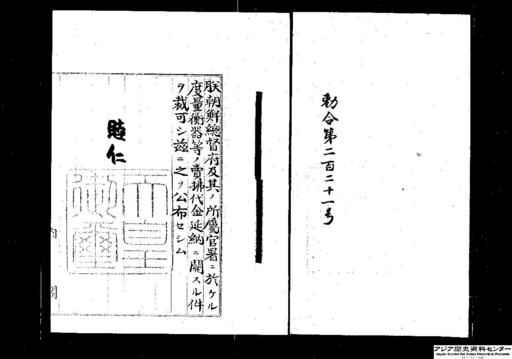 勅令第二百二十一号
朕朝鮮總督府及其ノ所屬官署ニ於ケル
度量衡器等ノ賣拂代金延納ニ關スル件
ヲ裁可シ茲ニ之ヲ公布セシム
睦仁
天皇
御璽
内閣
アジア歴史資料センター
Japan Center for Asian Historical Records